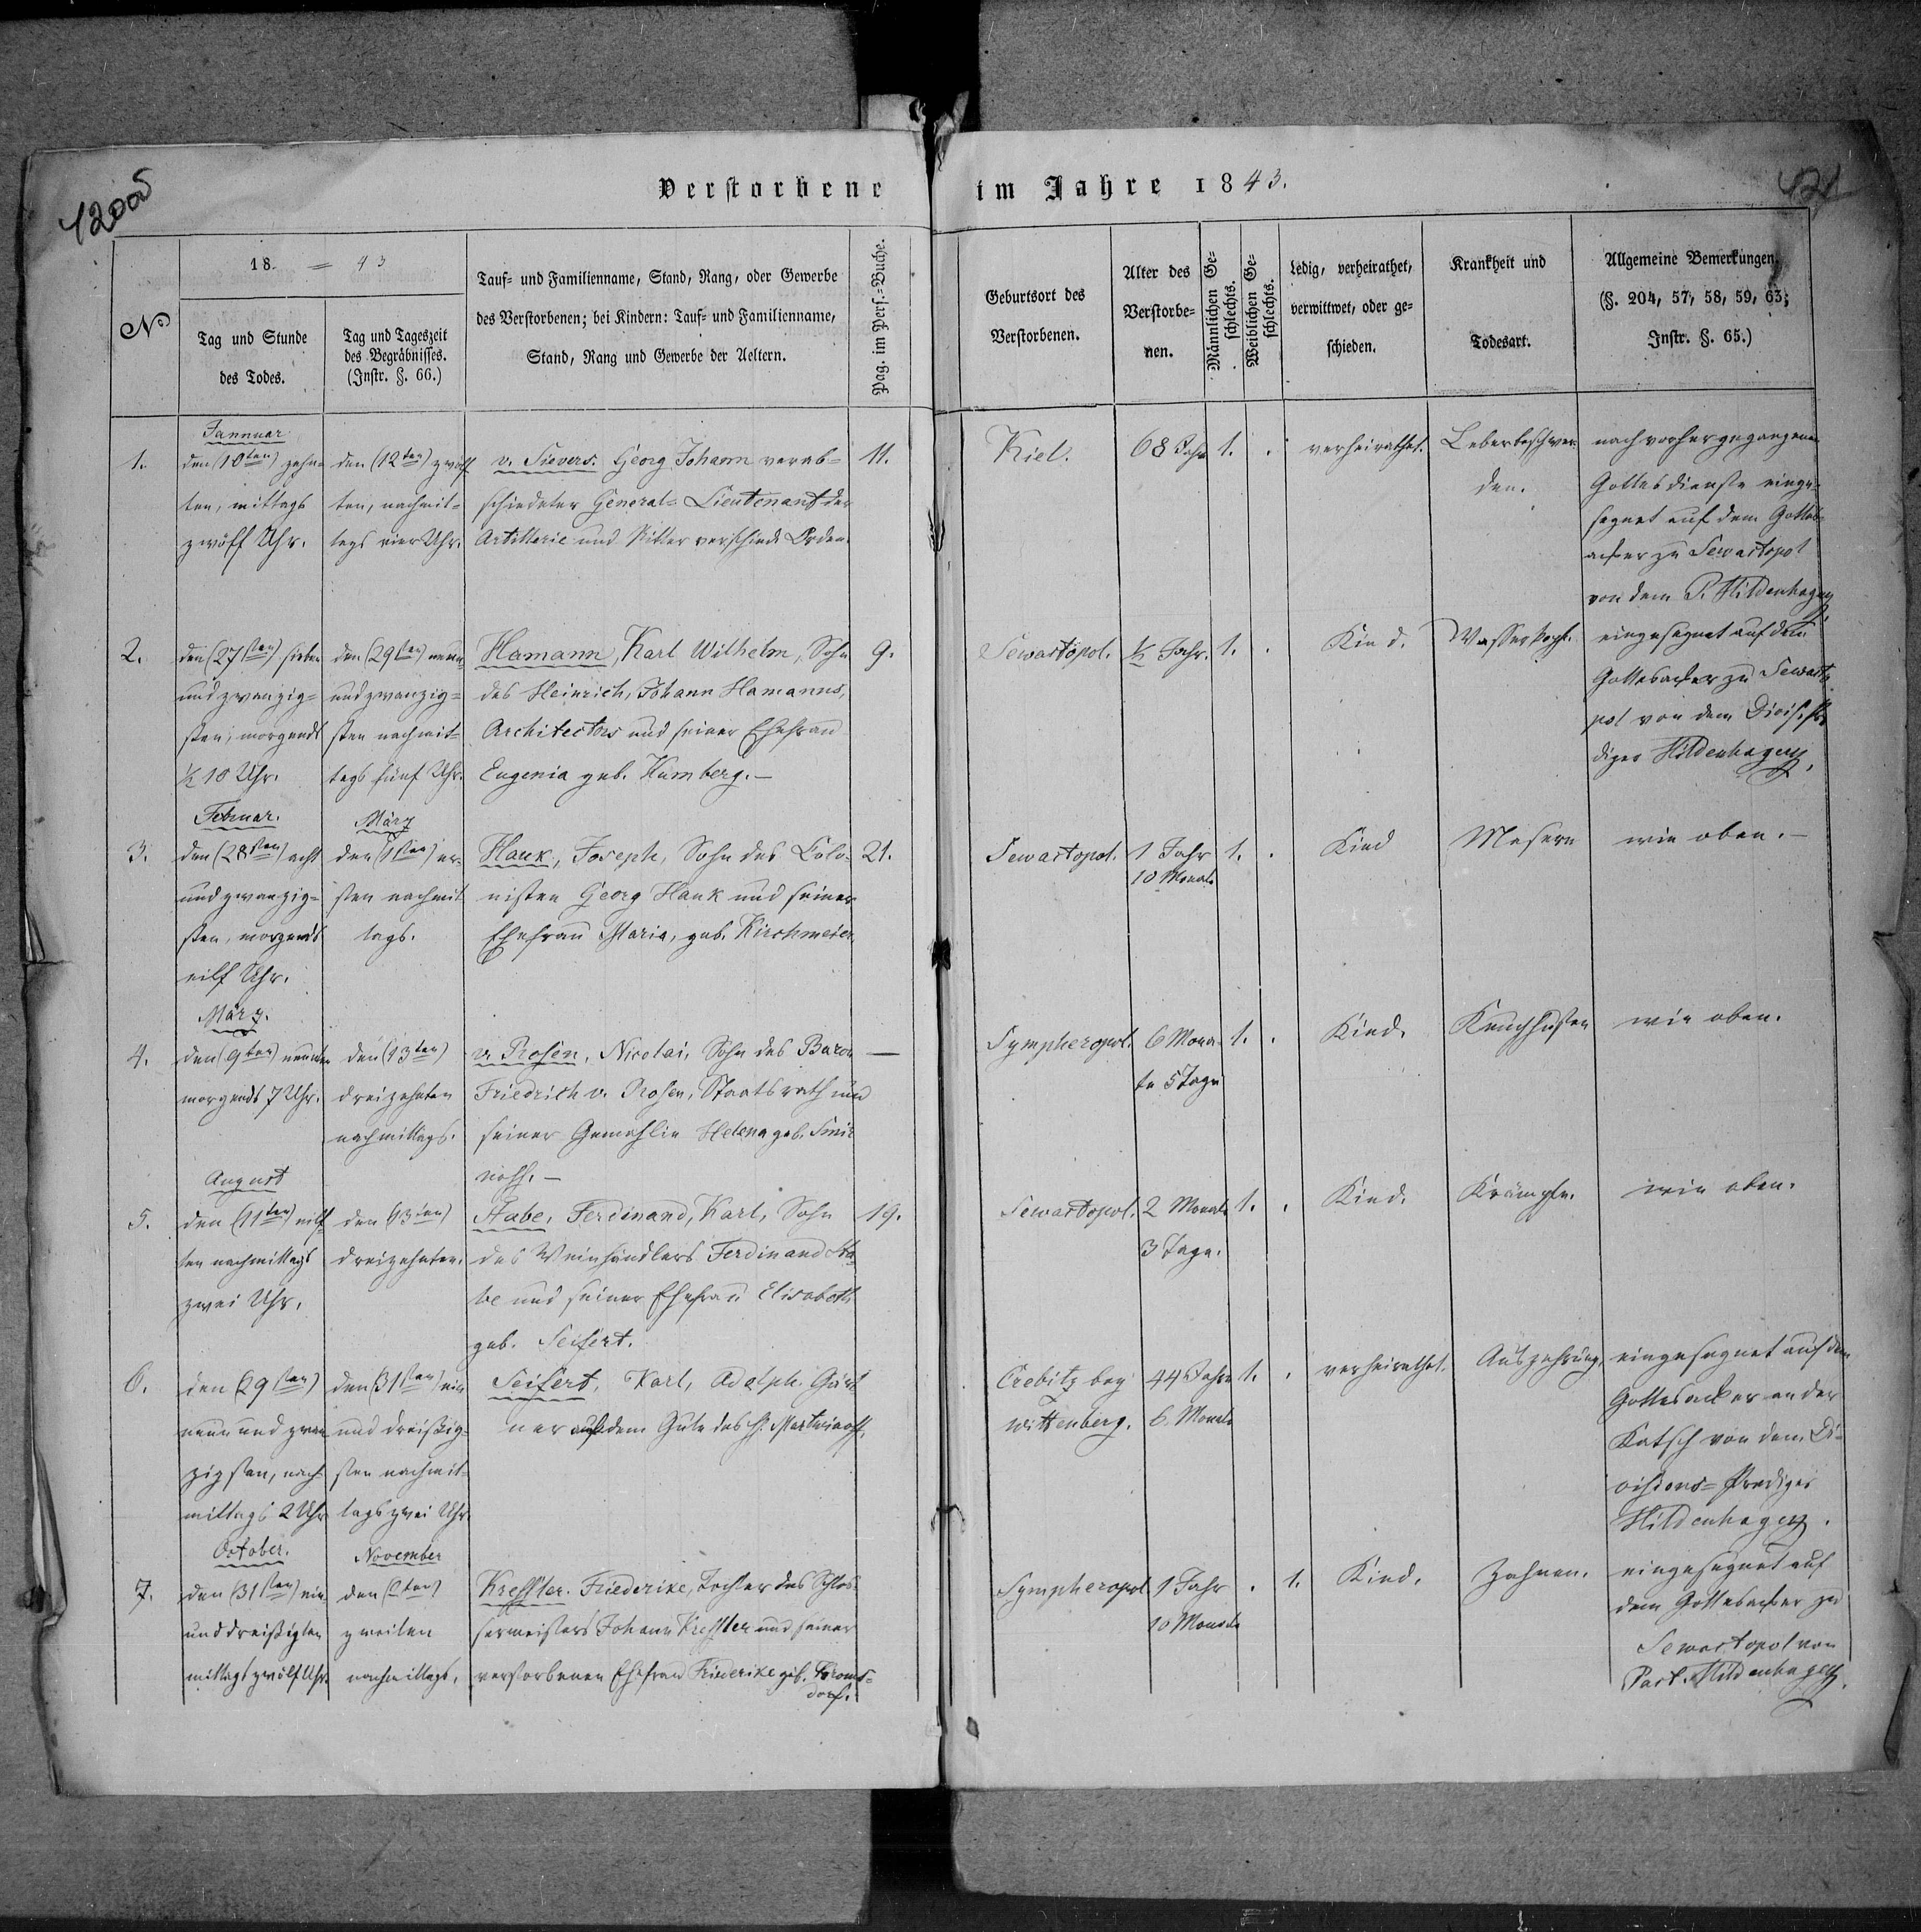 1200
421
Verstorbene im Jahre 1843.
№
18. = 43
Tag und Stunde
des Todes.
Tag und Tageszeit
des Begräbnisses.
(Instr. §. 66.)
Tauf- und Familienname, Stand, Rang, oder Gewerbe
des Verstorbenen; bei Kindern: Tauf- und Familienname,
Stand, Rang und Gewerbe der Aeltern.
Pag. im Pers.-Buche.
Geburtsort des
Verstorbenen.
Alter des
Verstorbe-
nen.
Männlichen Ge-
schlechts.
Weiblichen Ge-
schlechts.
Ledig, verheirathet,
verwittwet, oder ge-
schieden.
Krankheit und
Todesart.
Allgemeine Bemerkungen.
(§. 204, 57, 58, 59, 63;
Instr. §. 65.)
1.
Jannuar
den (10ten) zehn-
ten, mittags
zwölf Uhr.
den (12ten) zwölf
ten, nachmit-
tags vier Uhr.
v. Sievers. Georg Johann verab-
schiedeter General-Lieutenant der
Artillerie und Ritter verschied. Orden.
11.
Kiel.
68 Jahr
1.
.
verheirathet.
Leberbeschwer-
den.
nach vorhergegangenem
Gottesdienste einge-
segnet auf dem Gottes-
acker zu Sewastopol
von dem P. Hildenhagen
2.
den (27sten) sieben
und zwanzig-
sten, morgends
½ 10 Uhr.
den (29sten) neun
und zwanzig-
sten nachmit-
tags fünf Uhr.
Hamann, Karl Wilhelm, Sohn
des Heinrich, Johann Hamanns,
Architectors und seiner Ehefrau
Eugenia geb. Kumberg. —
9.
Sewastopol.
½ Jahr.
1.
.
Kind.
Wasserkopf.
eingesegnet auf dem
Gottesacker zu Sewasto
pol von dem Divis. Pre
diger Hildenhagen.
3.
Februar.
den (28sten) acht
und zwanzig-
sten, morgends
eilf Uhr.
März
den (1sten) er-
sten nachmit
tags.
Hauk, Joseph, Sohn des Colo-
nisten Georg Hauk und seiner
Ehefrau Maria, geb. Kirchmeier.
21.
Sewastopol.
1 Jahr
10 Monate
1.
.
Kind
Masern
wie oben. —
4.
März.
den (9ten) neunten
morgends 7 Uhr.
den (13ten)
dreizehnten
nachmittags.
v. Rosen, Nicolai, Sohn des Baron
Friedrich v. Rosen, Staatsrath und
seiner Gemahlin Helena geb. Smir
noff. —
—
Sympheropol.
6 Mona-
te 5 Tage
1.
.
Kind.
Keuchhusten
wie oben.
5.
August
den (11ten) eilf-
ten nachmittags
zwei Uhr.
den (13ten)
dreizehnten.
Stabe, Ferdinand, Karl, Sohn
des Weinhändlers Ferdinand Sta
be und seiner Ehefrau Elisabeth
geb. Seifert.
19.
Sewastopol.
2 Monate
3 Tage.
1.
.
Kind.
Krämpfe.
wie oben.
6.
den (29sten)
neun und zwan
zigsten, nach-
mittags 2 Uhr
den (31sten) ein
und dreißig-
sten nachmit-
tags zwei Uhr.
Seifert, Karl, Adolph. Gärt
ner auf dem Gute des H. Martwinoff.
Crebitz bey
Wittenberg.
44 Jahre
6. Monate
1.
.
verheirathet.
Auszehrung,
eingesegnet auf dem
Gottesacker an der
Katsch von dem Di-
visions-Prediger
Hildenhagen.
7.
October.
den (31sten) ein-
und dreißigten
mittags zwölf Uhr.
November
den (2ten)
zweiten
nachmittags.
Kreffter. Friederike, Tochter des Schlos-
sermeisters Johann Kreffter und seiner
verstorbenen Ehefrau Friederike geb. Troms-
dorf.
Sympheropol
1 Jahr
10 Monate
.
1.
Kind.
Zahnen.
eingesegnet auf
dem Gottesacker zu
Sewastopol von
Past. Hildenhagen.